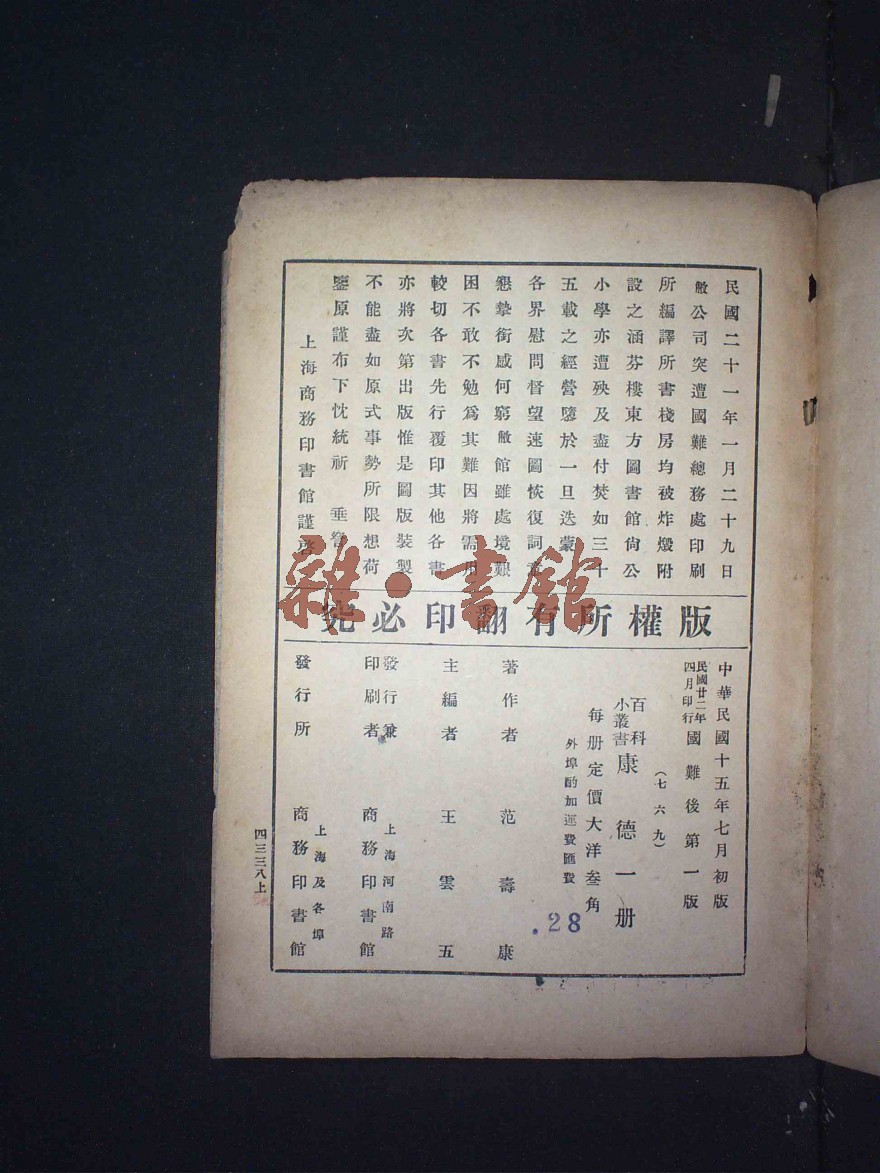 民國二十一年一月二十九日
敝公司突遭國難總務處印刷
所編譯所書棧房均被炸燬附
設之涵芬樓東方圖書館尙公
小學亦遭殃及盡付焚如三十
五載之經營隳於一旦迭蒙
各界慰問督望速圖恢復詞意
懇摯銜感何窮敝館雖處境艱
困不敢不勉爲其難因將需用
較切各書先行覆印其他各書
亦將次第出版惟是圖版裝製
不能盡如原式事勢所限想荷
鑒原謹布下忱統祈 垂詧
上海商務印書館謹啓
版權所有翻印必究
中華民國十五年七月初版
民國廿二年四月印行 國難後第一版
(七六九)
百科小叢書 康德一册
每册定價大洋叁角
外埠酌加運費匯費
.28
著作者 范壽康
主編者 王雲五
發行兼印刷者 上海河南路 商務印書館
發行所 上海及各埠 商務印書館
四三三八上
雜·書館